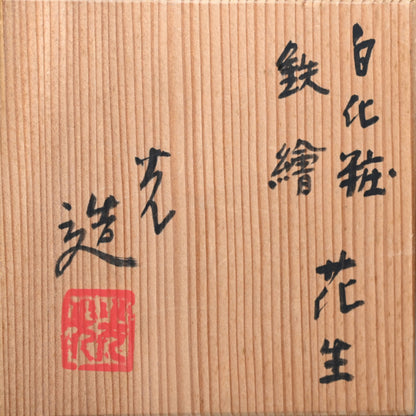 白化粧
鉄繪
花生
光
造